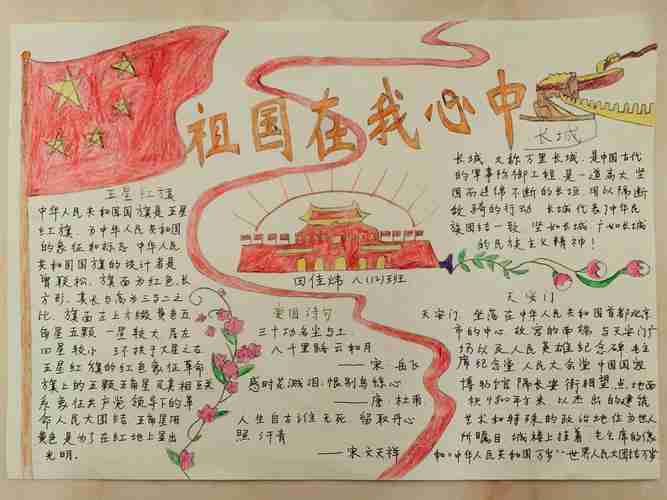 祖国在我心中
五星红旗
中华人民共和国国旗是五星
红旗，为中华人民共和国
的象征和标志 中华人民
共和国国旗的设计者是
曾联松，旗面为红色，长
方形，其长与高为三与二之
比，旗面左上方缀黄色五
角星五颗 一星较大 居左
四星较小 环拱于大星之右
五星红旗的红色象征革命
旗上的五颗五角星及其相互关
系象征共产党领导下的革
命人民大团结 五角星用
黄色是为了在红地上显出
光明。
田佳炜 八(12)班
爱国诗句
三十功名尘与土
八千里路云和月
——宋 岳飞
感时花溅泪，恨别鸟惊心
——唐 杜甫
人生自古谁无死 留取丹心
照汗青
——宋 文天祥
长城
长城，又称万里长城，是中国古代
的军事防御工程 是一道高大 坚
固而连绵不断的长垣，用以隔断
敌骑的行动 长城代表了中华民
族团结一致，坚如长城
的民族主义精神！
天安门
天安门，坐落在中华人民共和国首都北京
市的中心 故宫的南端 与天安门广
场以及人民英雄纪念碑 毛主
席纪念堂 人民大会堂 中国国家
博物馆 隔长安街相望 地面
积4800平方米 以杰出的建筑
艺术和特殊的政治地位为世人
所瞩目 城楼上挂着 毛主席的像
和《中华人民共和国万岁》《世界人民大团结万岁